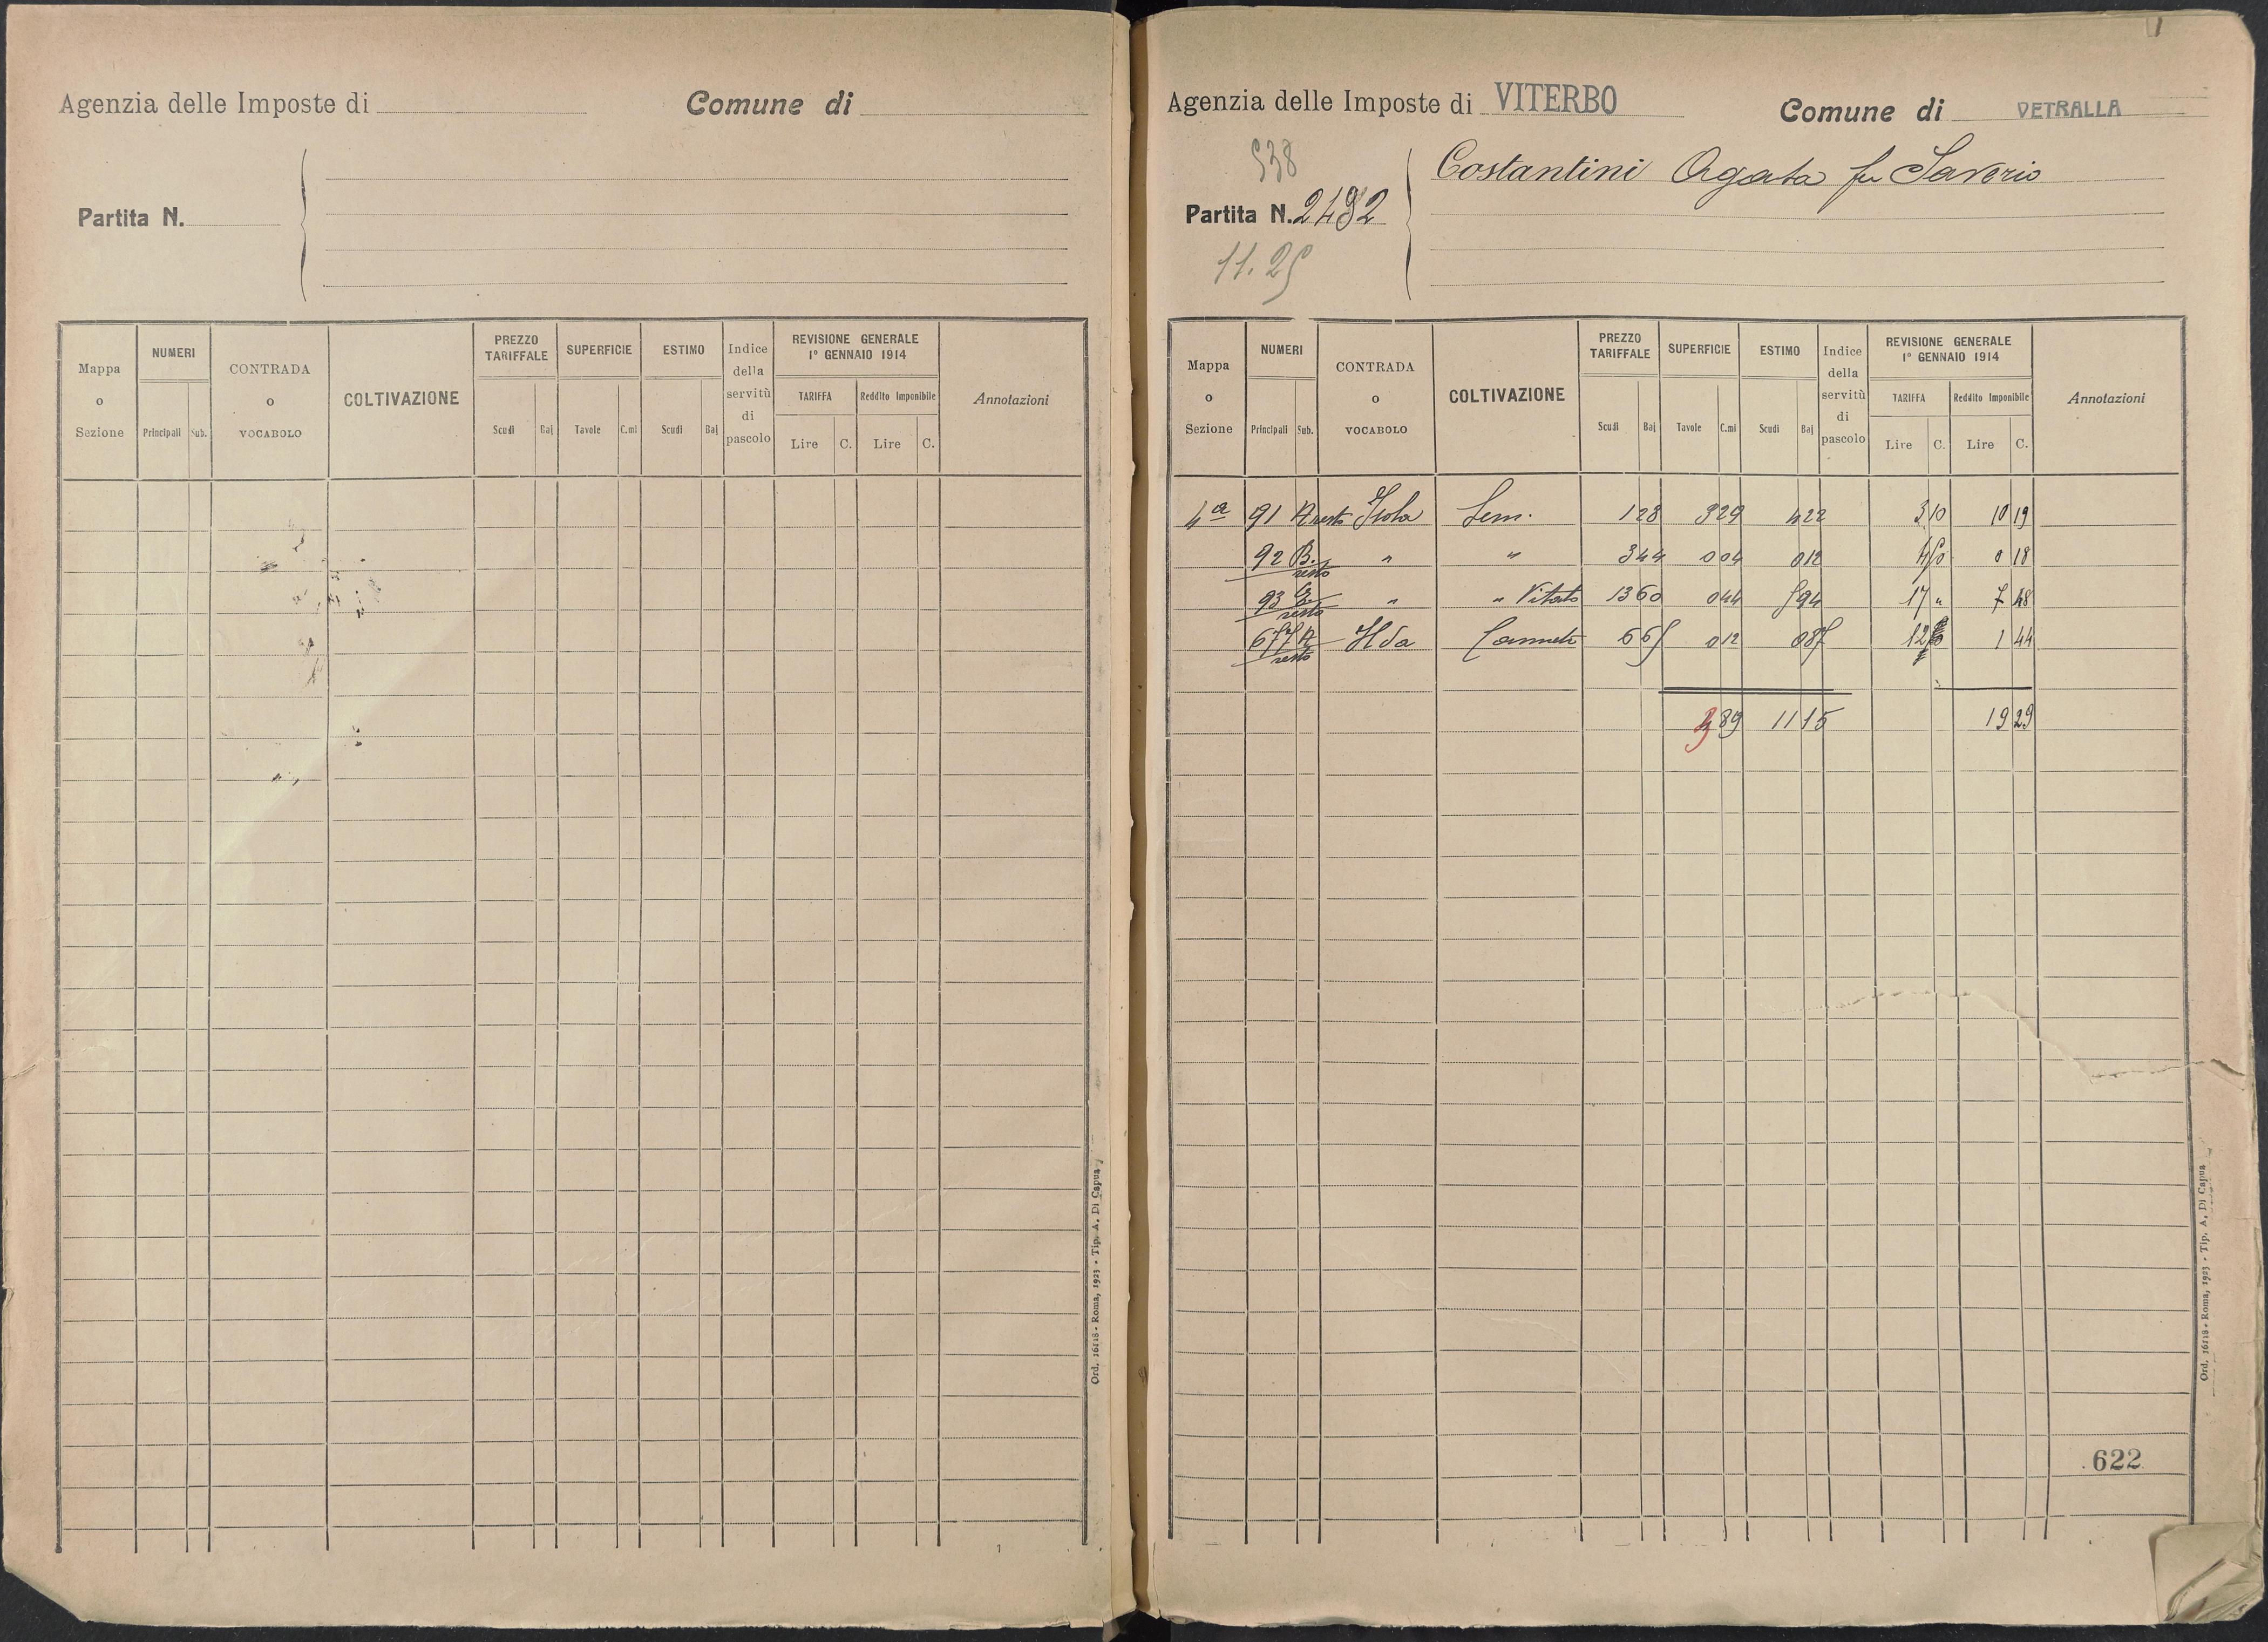 Agenzia delle Imposte di
Comune di
Partita N.
Mappa o Sezione
NUMERI
Principali
Sub.
CONTRADA o VOCABOLO
COLTIVAZIONE
PREZZO TARIFFALE
Scudi
Baj
SUPERFICIE
Tavole
C.mi
ESTIMO
Scudi
Baj
Indice della servitù di pascolo
REVISIONE GENERALE
1° GENNAIO 1914
TARIFFA
Lire
C.
Reddito Imponibile
Lire
C.
Annotazioni
Ord. 16118 - Roma, 1923 - Tip. A. Di Capua
Agenzia delle Imposte di VITERBO
Comune di VETRALLA
538
Costantini Agata fu Saverio
Partita N. 2482
11.25
Mappa o Sezione
NUMERI
Principali
Sub.
CONTRADA o VOCABOLO
COLTIVAZIONE
PREZZO TARIFFALE
Scudi
Baj
SUPERFICIE
Tavole
C.mi
ESTIMO
Scudi
Baj
Indice della servitù di pascolo
REVISIONE GENERALE
1° GENNAIO 1914
TARIFFA
Lire
C.
Reddito Imponibile
Lire
C.
Annotazioni
4a 91 A resto Isola Sem. 1 28 3 29 4 22 3 10 10 19
92 B. resto " " 3 44 0 04 0 12 4 50 0 18
93 resto " " Vitato 13 60 0 44 5 94 17 " 7 48
677 A resto Canneto 6 65 0 12 0 87 12 1 44
3 89 11 15 19 29
622
Ord. 16118 - Roma, 1923 - Tip. A. Di Capua